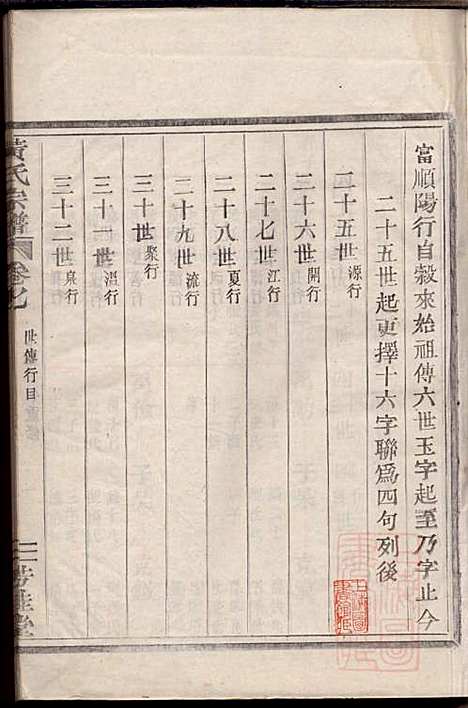 富順陽行自穀來始祖傳六世玉字起至乃字止今
二十五世起更擇十六字聯為四句列後
二十五世源行
二十六世開行
二十七世江行
二十八世夏行
二十九世流行
三十世聚行
三十一世湿行
三十二世泉行
黃氏宗譜
卷
世傳行目